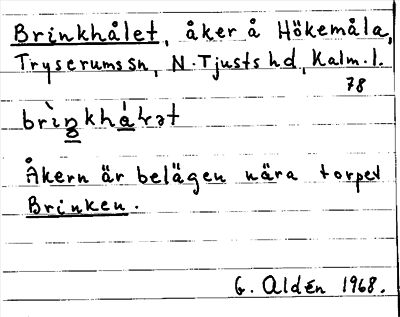 Brinkhålet, åker å Hökemåla,
Tryserums sn, N. Tjusts hd, Kalm. l.
78
Åkern är belägen nära torpet
Brinken.
G. Aldén 1968.